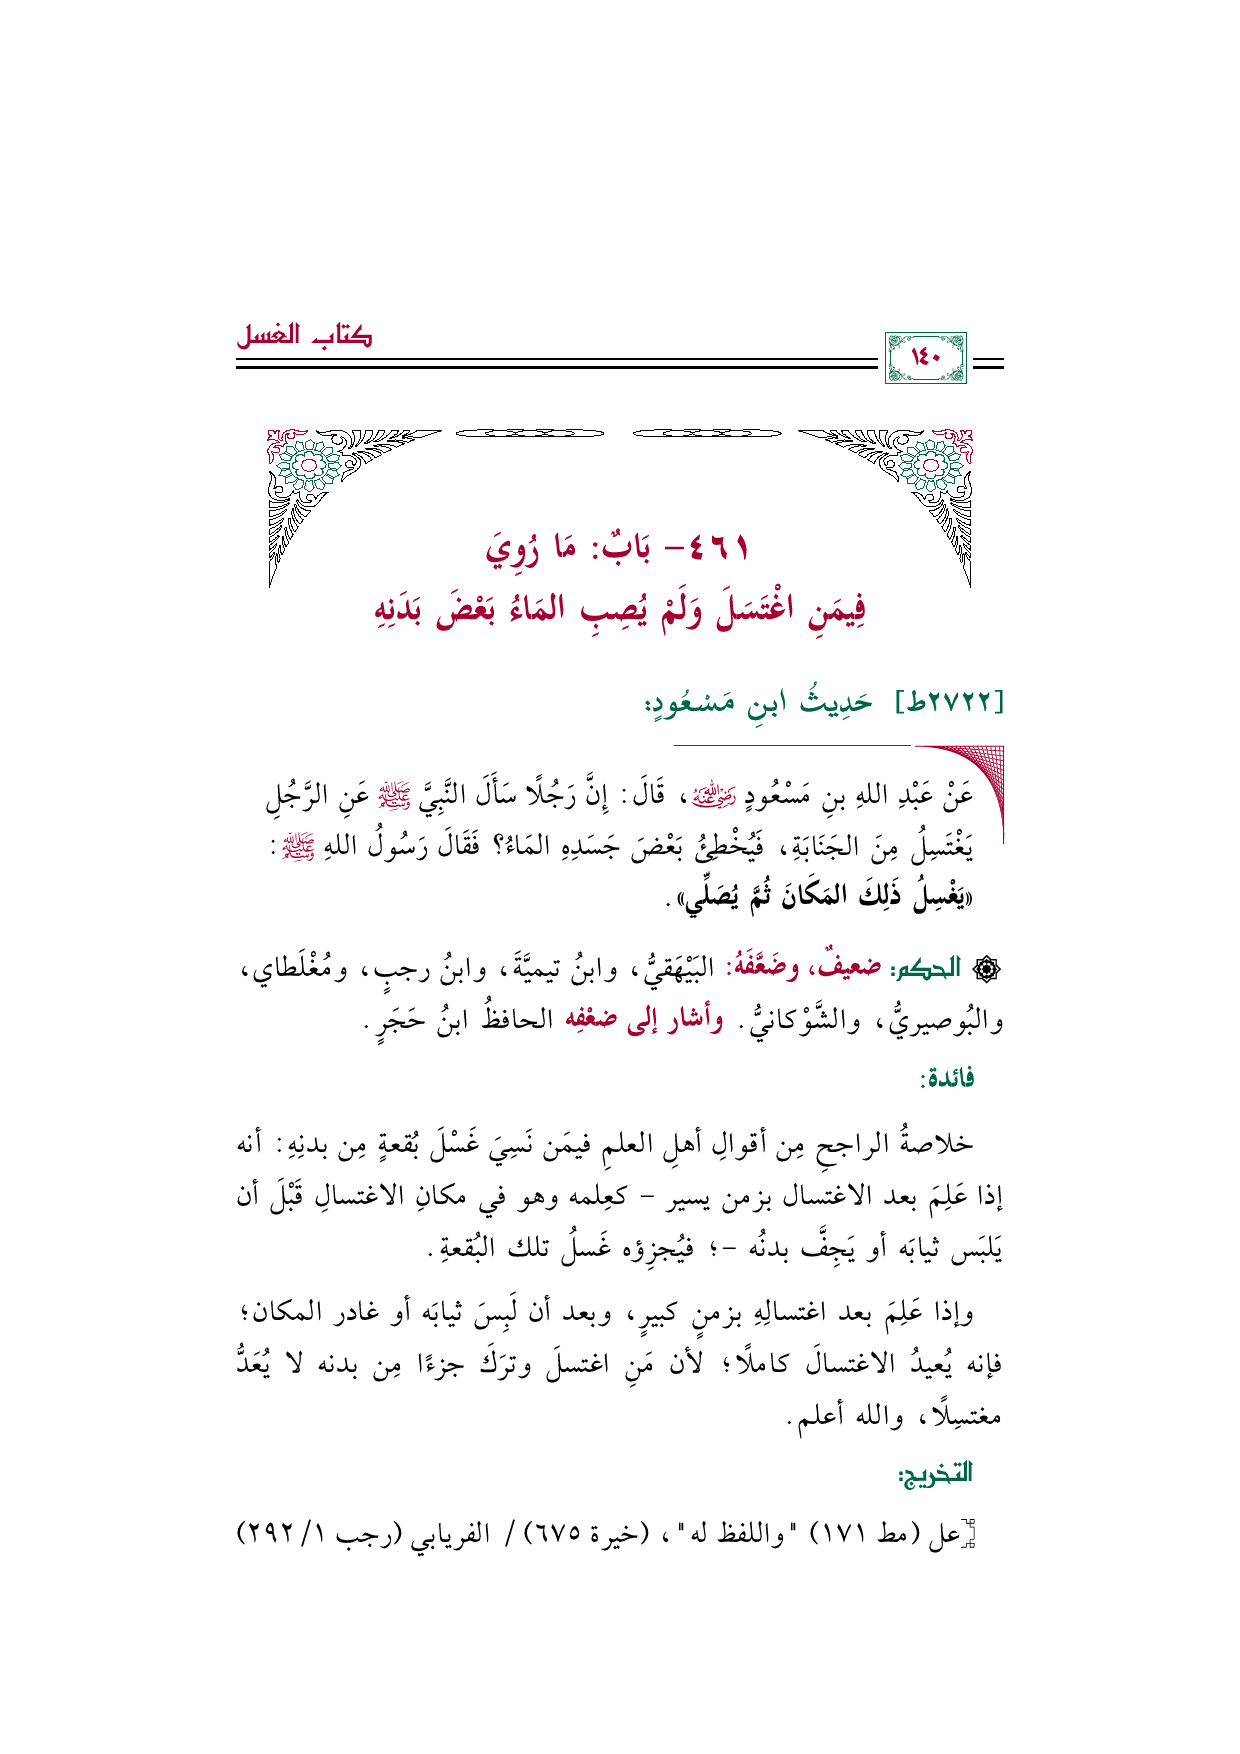 كتاب الغسل
١٤٠
٤٦١- بَابٌ: مَا رُوِيَ
فِيمَنِ اغْتَسَلَ وَلَمْ يُصِبِ المَاءُ بَعْضَ بَدَنِهِ
[٢٧٢٢ط] حَدِيثُ ابنِ مَسْعُودٍ:
عَنْ عَبْدِ اللهِ بنِ مَسْعُودٍ رضي الله عنه، قَالَ: إِنَّ رَجُلًا سَأَلَ النَّبِيَّ ﷺ عَنِ الرَّجُلِ
يَغْتَسِلُ مِنَ الجَنَابَةِ، فَيُخْطِئُ بَعْضَ جَسَدِهِ المَاءُ؟ فَقَالَ رَسُولُ اللهِ ﷺ:
«يَغْسِلُ ذَلِكَ المَكَانَ ثُمَّ يُصَلِّي».
الحكم: ضعيفٌ، وضَعَّفَهُ: البَيْهَقيُّ، وابنُ تيميَّةَ، وابنُ رجبٍ، ومُغْلَطاي،
والبُوصيريُّ، والشَّوْكانيُّ. وأشار إلى ضعْفِه الحافظُ ابنُ حَجَرٍ.
فائدة:
خلاصةُ الراجحِ مِن أقوالِ أهلِ العلمِ فيمَن نَسِيَ غَسْلَ بُقعةٍ مِن بدنِهِ: أنه
إذا عَلِمَ بعد الاغتسال بزمن يسير - كعِلمه وهو في مكانِ الاغتسالِ قَبْلَ أن
يَلبَس ثيابَه أو يَجِفَّ بدنُه -؛ فيُجزِؤه غَسلُ تلك البُقعةِ.
وإذا عَلِمَ بعد اغتسالِهِ بزمنٍ كبيرٍ، وبعد أن لَبِسَ ثيابَه أو غادر المكان؛
فإنه يُعيدُ الاغتسالَ كاملًا؛ لأن مَنِ اغتسلَ وترَكَ جزءًا مِن بدنه لا يُعَدُّ
مغتسِلًا، والله أعلم.
التخريج:
[عل (مط ١٧١) "واللفظ له"، (خيرة ٦٧٥) / الفريابي (رجب ١/ ٢٩٢)